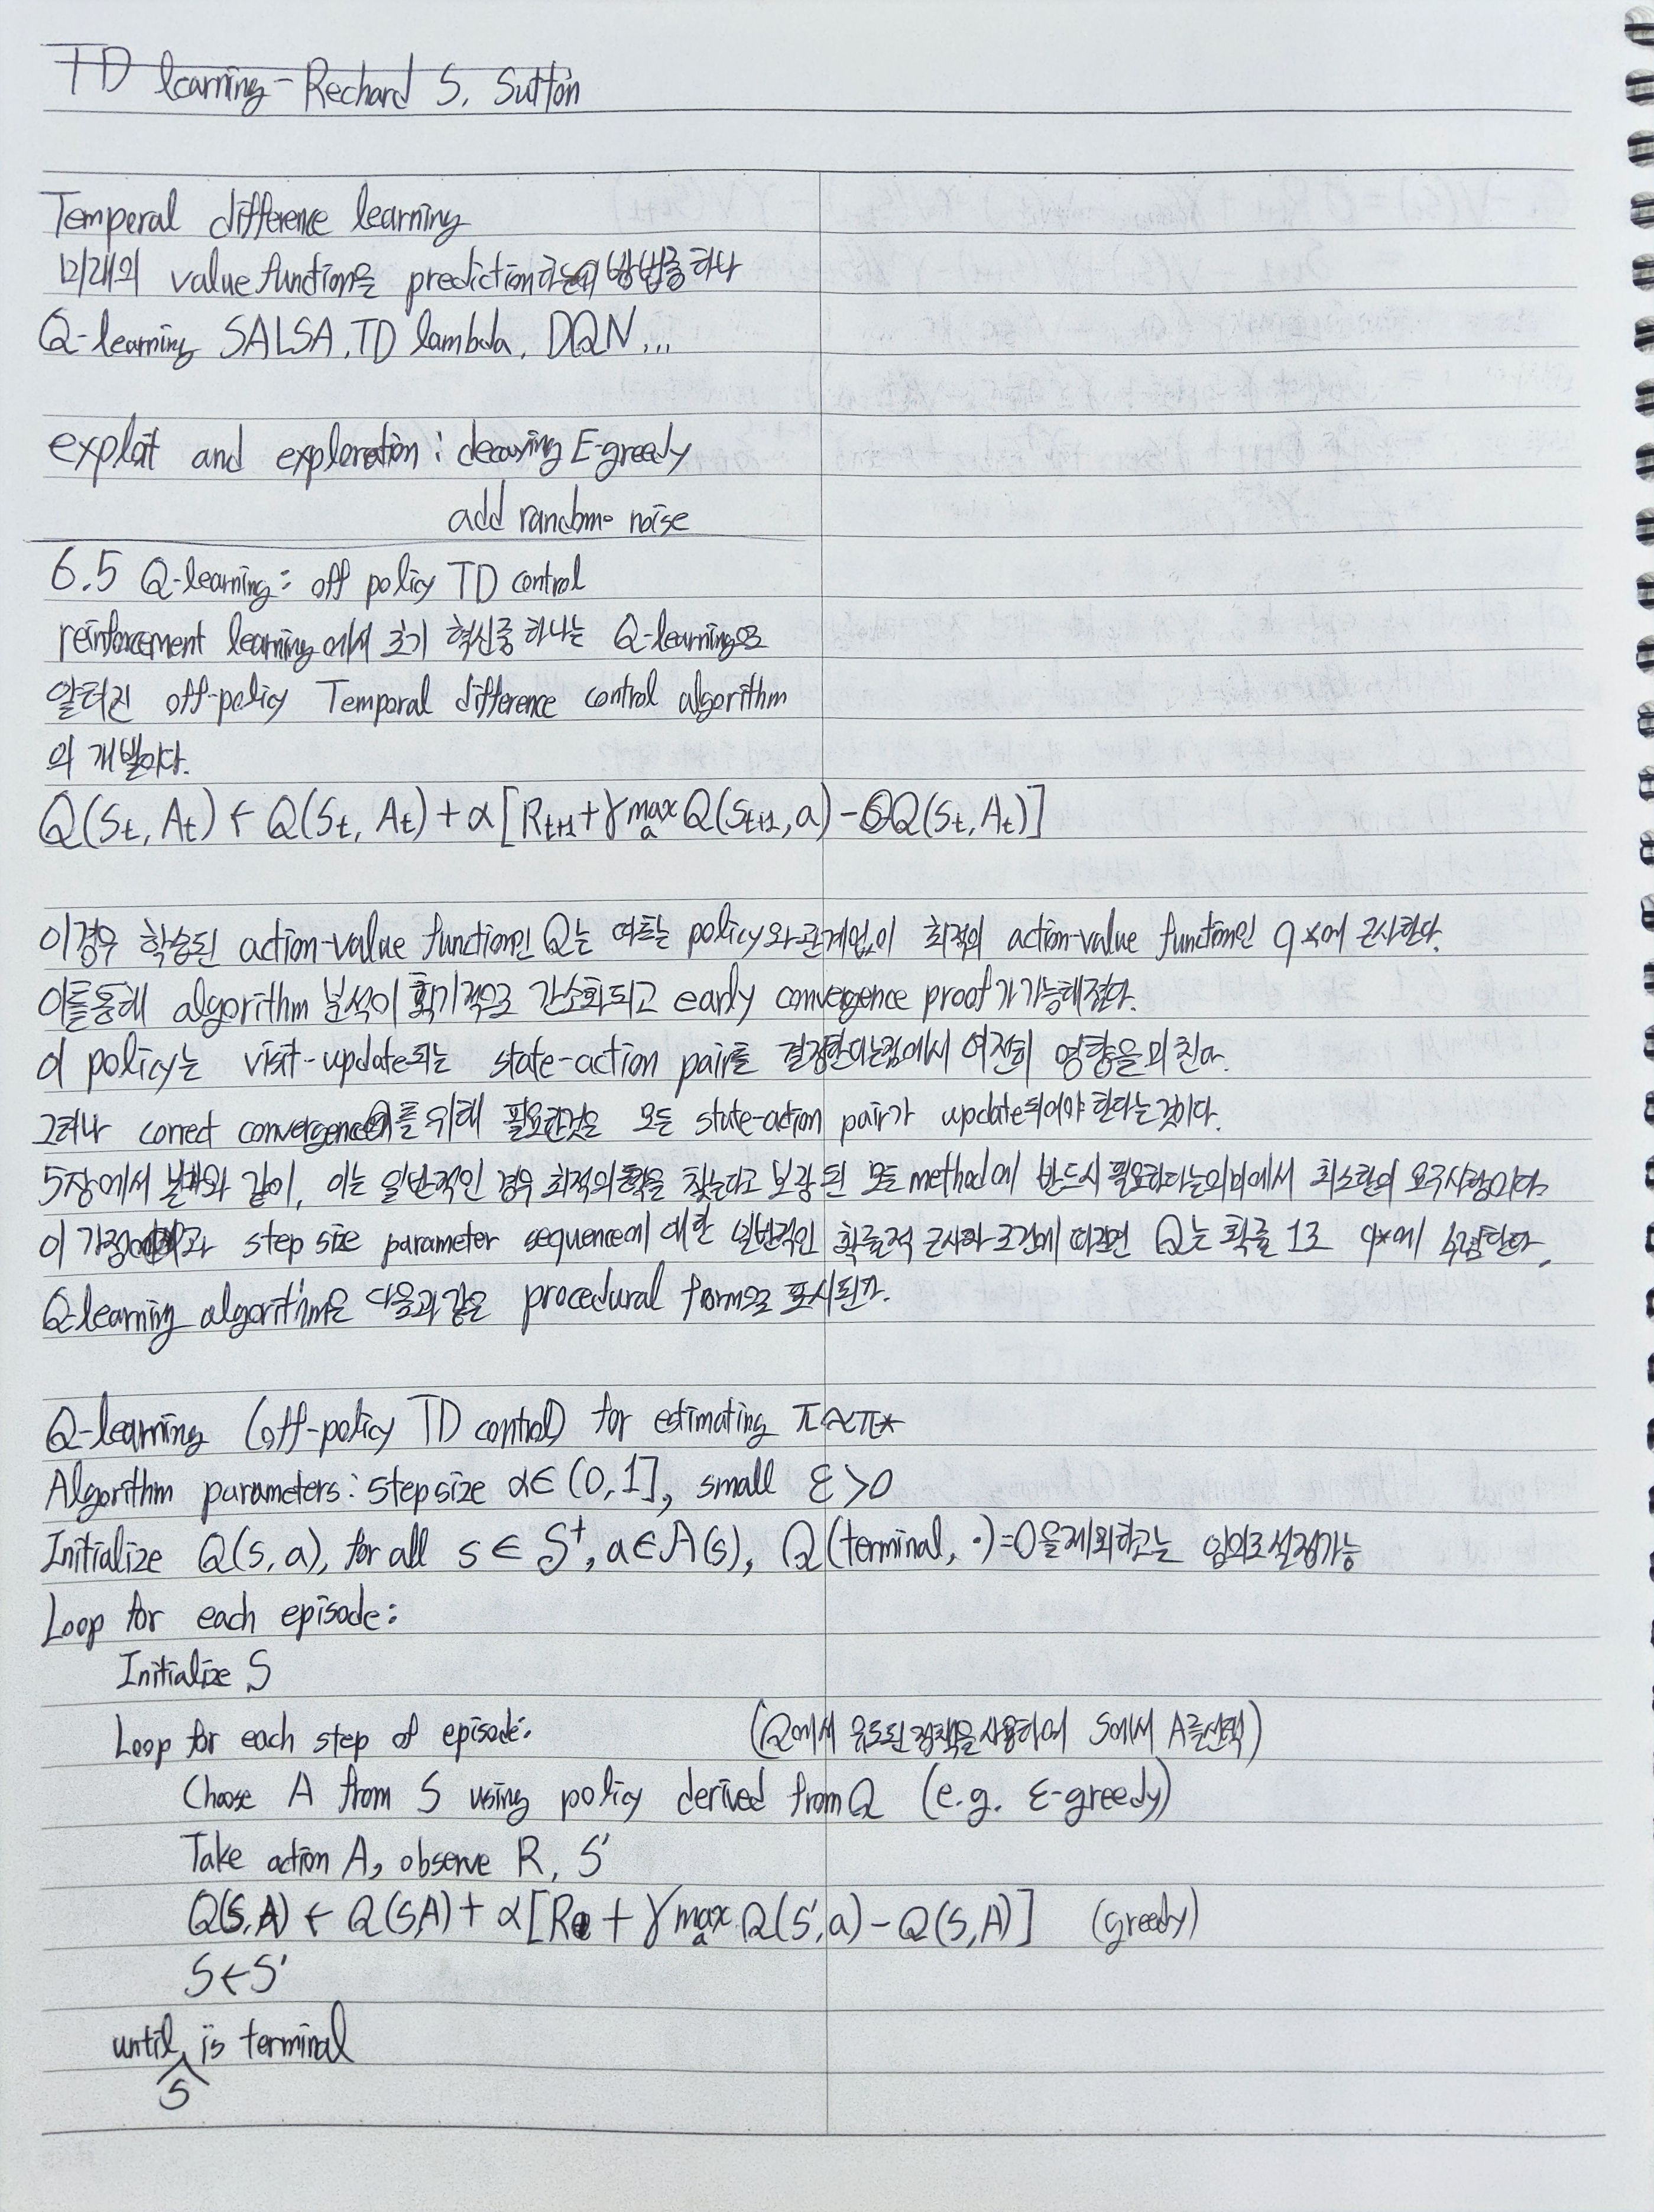 TD learning - Rechard S. Sutton
Temporal difference learning
미래의 value function을 prediction하는 방법중 하나
Q-learning SALSA, TD lambda, DQN...
exploit and exploration : decaying E-greedy
add random noise
6.5 Q-learning : off policy TD control
reinforcement learning에서 초기 혁신중 하나는 Q-learning으로
알려진 off-policy Temporal difference control algorithm
의 개발이다.
Q(St, At) ← Q(St, At) + α[Rt+1 + γ max a Q(St+1, a) - Q(St, At)]
이경우 학습된 action-value function인 Q는 따르는 policy와 관계없이 최적의 action-value function인 q*에 근사한다.
이를통해 algorithm 분석이 획기적으로 간소화되고 early convergence proof가 가능해졌다.
이 policy는 visit-update되는 state-action pair를 결정한다는점에서 여전히 영향을 미친다.
그러나 correct convergence를 위해 필요한것은 모든 state-action pair가 update되어야 한다는 것이다.
5장에서 본바와 같이, 이는 일반적인 경우 최적의 행동을 찾는다고 보장 된 모든 method에 반드시 필요하다는의미에서 최소한의 요구사항이다.
이 가정과 step size parameter sequence에 대한 일반적인 확률적 근사화 조건에 따르면 Q는 확률 1로 q*에 수렴한다.
Q-learning algorithm은 다음과 같은 procedural form으로 표시된다.
Q-learning (off-policy TD control) for estimating π≈π*
Algorithm parameters : step size α∈(0,1], small ε>0
Initialize Q(s,a), for all s∈S+, a∈A(s), Q(terminal, ·)=0을제외하고는 임의로설정가능
Loop for each episode:
Initialize S
Loop for each step of episode: (Q에서 유도된 정책을 사용하여 S에서 A를선택)
Choose A from S using policy derived from Q (e.g. ε-greedy)
Take action A, observe R, S'
Q(S,A) ← Q(S,A) + α[R + γ max a Q(S',a) - Q(S,A)] (greedy)
S←S'
until S is terminal